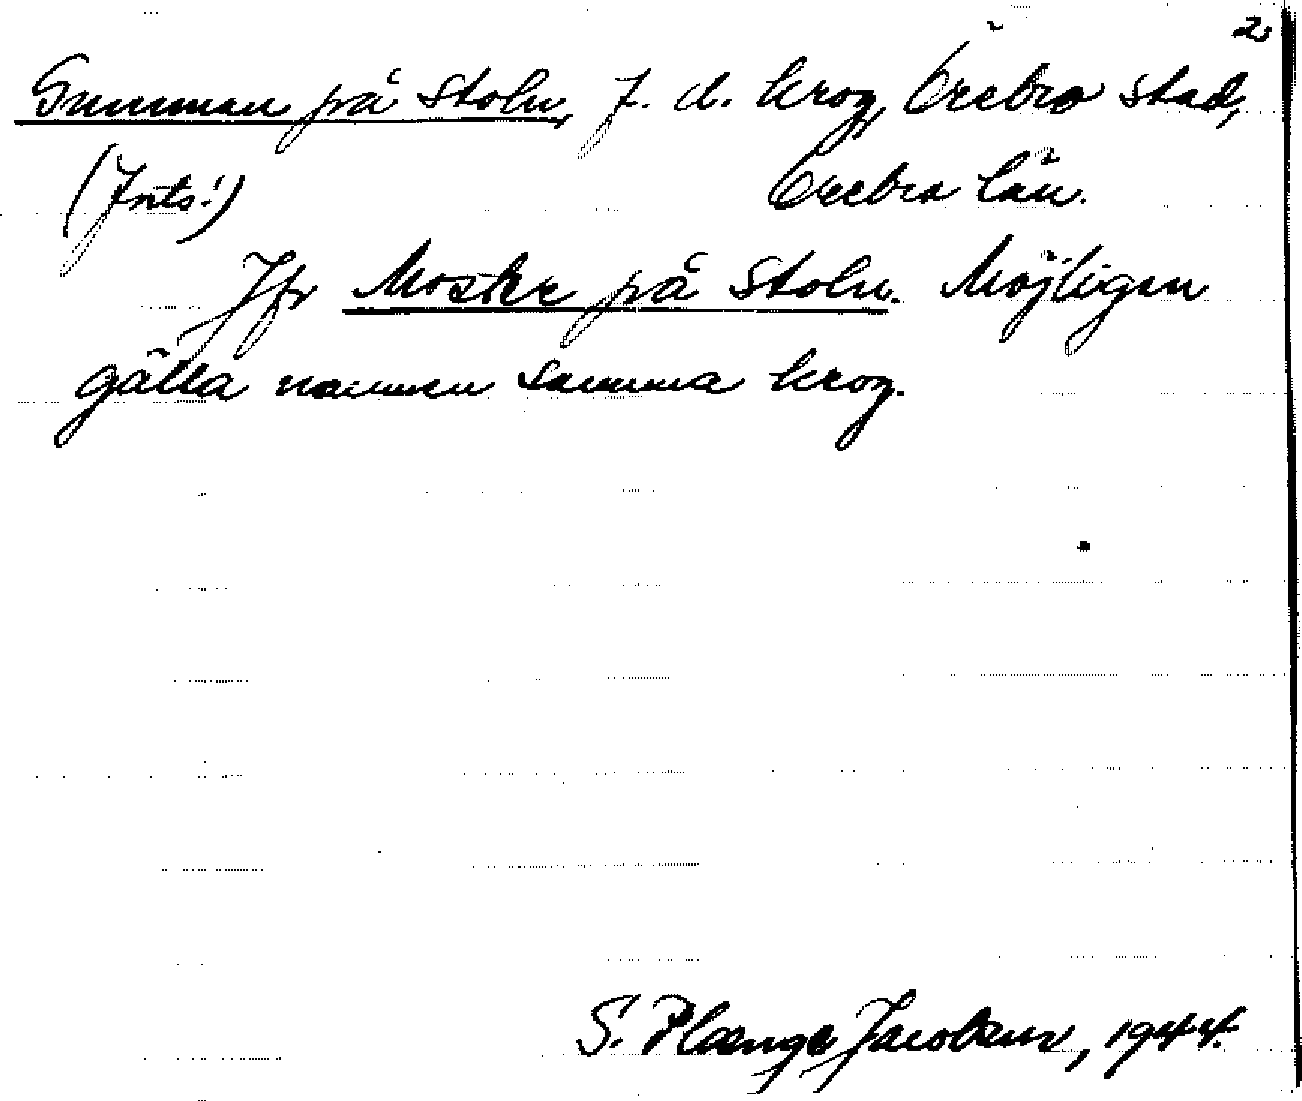 2.
Gumman på Stoln, f. d. krog, Örebro stad,
(Forts.!) Örebro län.
Jfr Moster på Stoln. Möjligen
gälla namnen samma krog.
S. Plænge Jacobson, 1944.